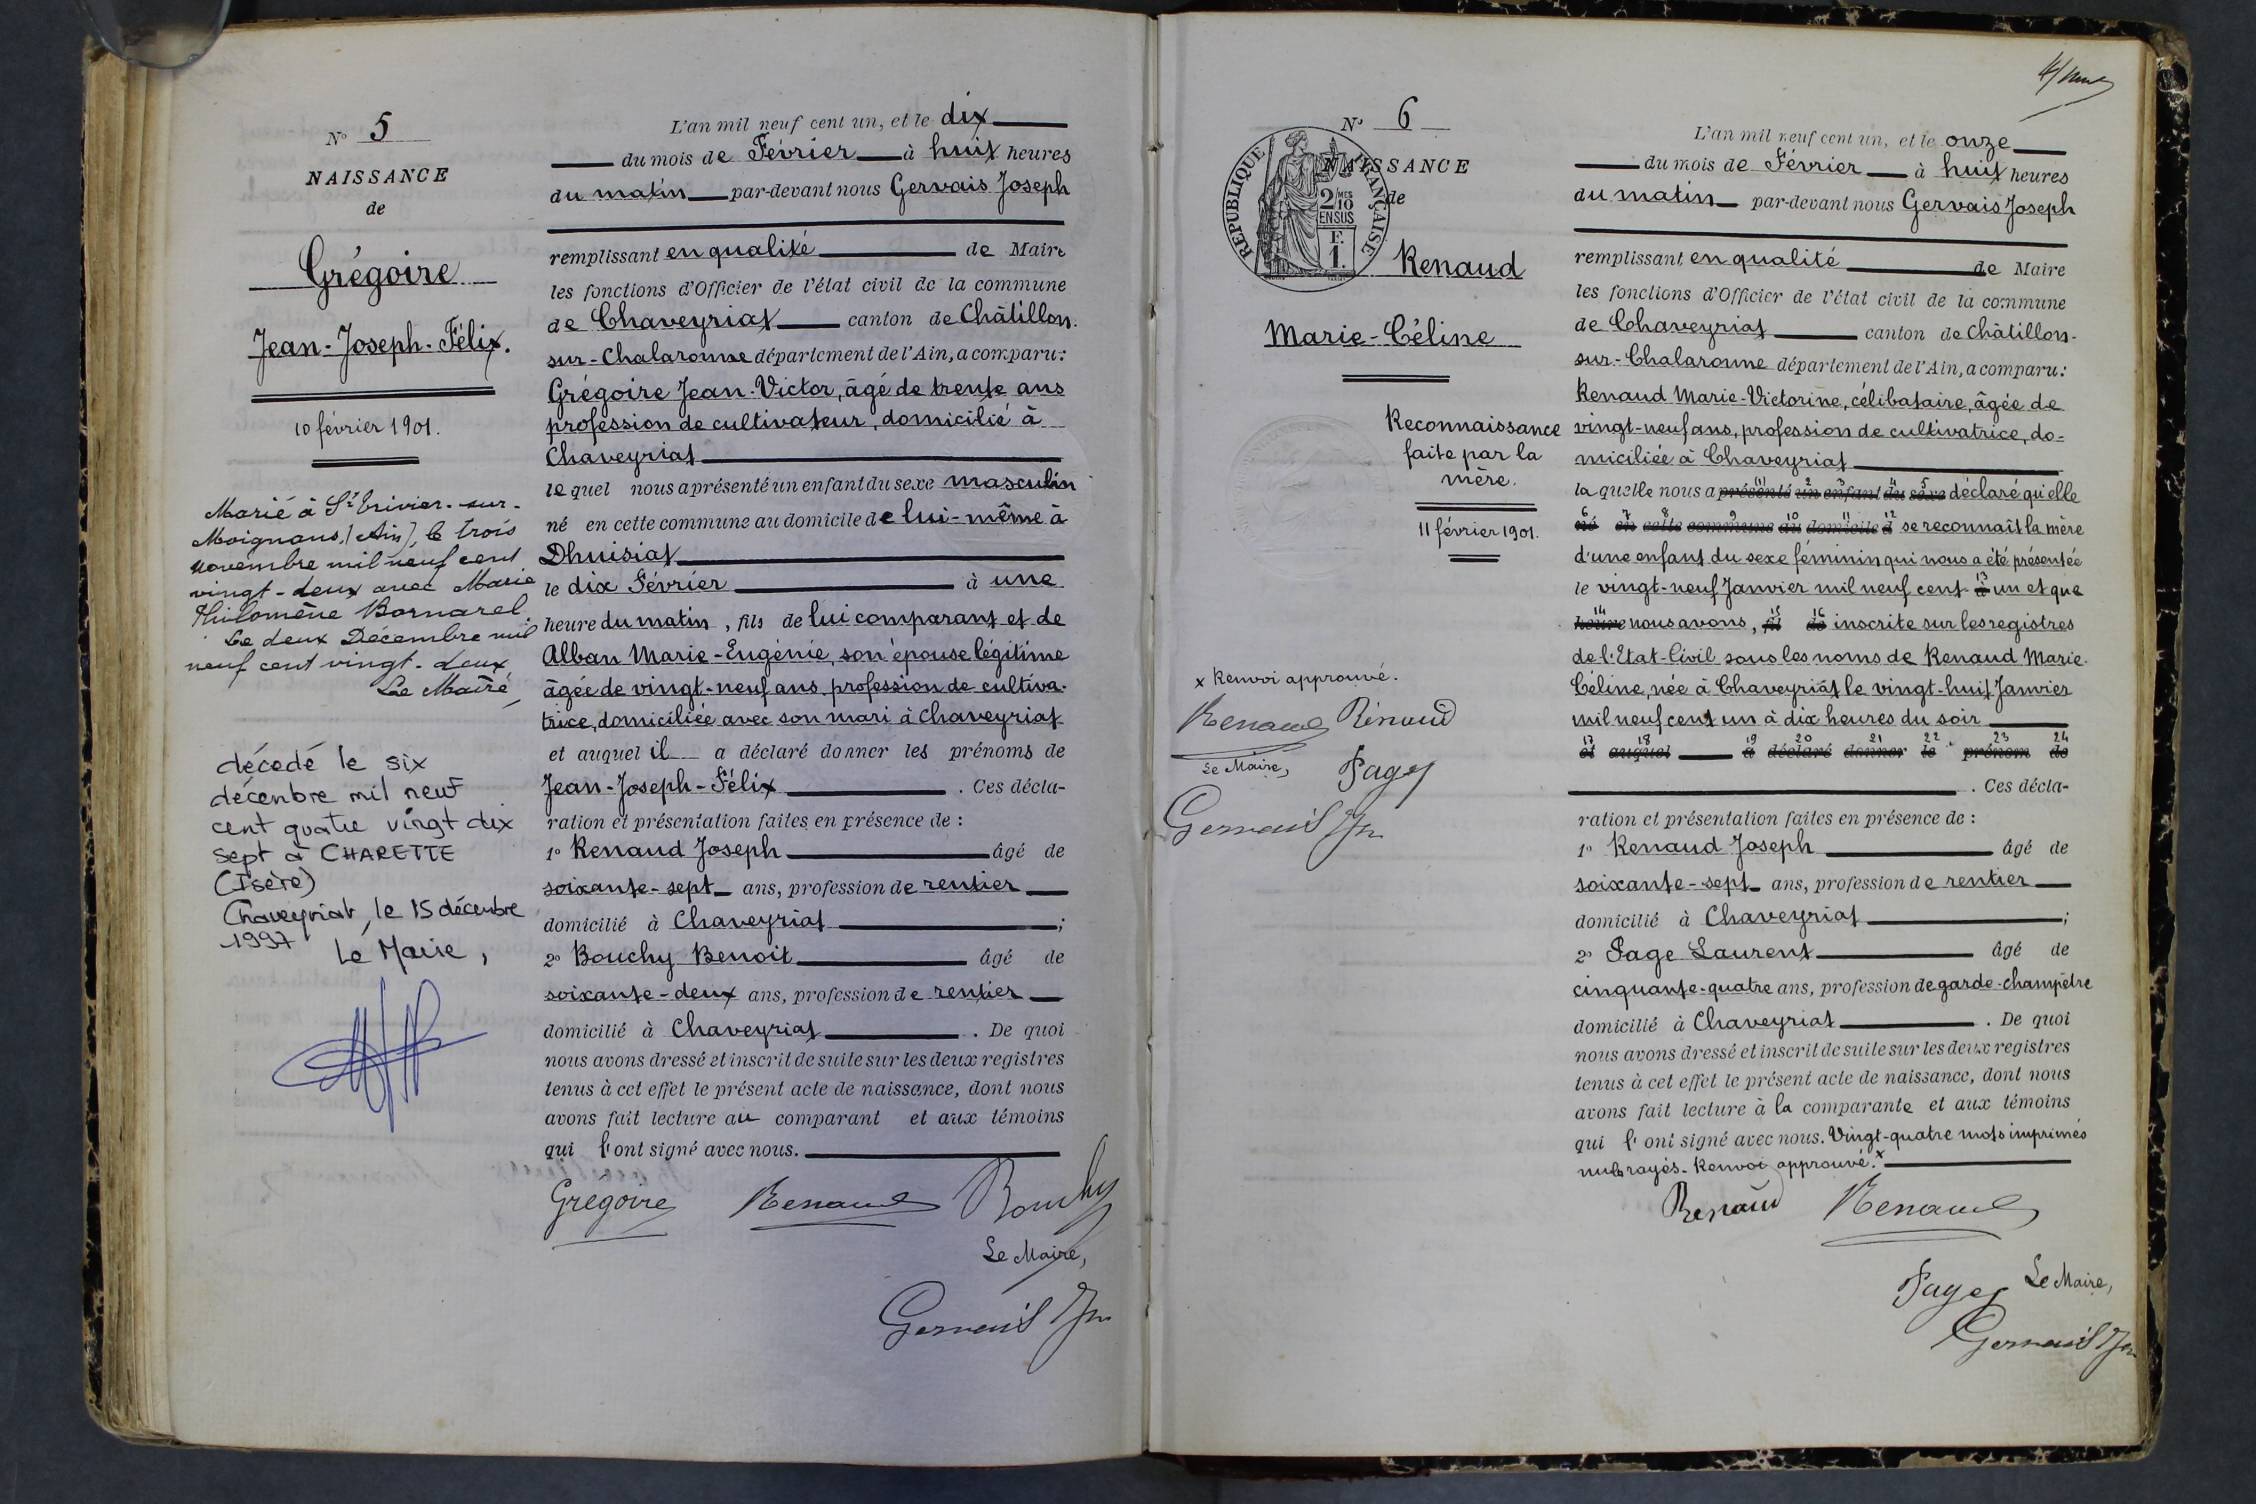 N° 5
NAISSANCE
de
Grégoire
Jean-Joseph-Félix.
10 février 1901.
Marié à St Trivier-sur-
Moignans, (Ain), le trois
novembre mil neuf cent
vingt-deux avec Marie
Philomène Bornarel.
Le deux Décembre mil
neuf cent vingt-deux
Le Maire,
décédé le six
décembre mil neuf
cent quatre vingt dix
sept à CHARETTE
(Isère)
Chaveyriat, le 15 décembre
1997
Le Maire,
L'an mil neuf cent un, et le dix
du mois de Février à huit heures
du matin par-devant nous Gervais Joseph
remplissant en qualité de Maire
les fonctions d'Officier de l'état civil de la commune
de Chaveyriat canton de Châtillon-
sur-Chalaronne département de l'Ain, a comparu:
Grégoire Jean-Victor, âgé de trente ans
profession de cultivateur, domicilié à
Chaveyriat
lequel nous a présenté un enfant du sexe masculin
né en cette commune au domicile de lui-même à
Dhuisiat
le dix Février à une
heure du matin, fils de lui comparant et de
Alban Marie-Eugénie, son épouse légitime
âgée de vingt-neuf ans, profession de cultiva-
trice, domiciliée avec son mari à Chaveyriat
et auquel il a déclaré donner les prénoms de
Jean-Joseph-Félix . Ces décla-
ration et présentation faites en présence de :
1° Renaud Joseph âgé de
soixante-sept ans, profession de rentier
domicilié à Chaveyriat ;
2° Bouchy Benoit âgé de
soixante-deux ans, profession de rentier
domicilié à Chaveyriat . De quoi
nous avons dressé et inscrit de suite sur les deux registres
tenus à cet effet le présent acte de naissance, dont nous
avons fait lecture au comparant et aux témoins
qui l'ont signé avec nous.
Grégoire Renaud Bouchy
Le Maire,
Gervais Jh
N° 6
NAISSANCE
de
RÉPUBLIQUE FRANÇAISE
2/10 MES
EN SUS
F.
1.
Renaud
Marie-Céline
Reconnaissance
faite par la
mère.
11 février 1901.
x Renvoi approuvé.
Renaud Renaud
Le Maire, Page
Gervais Jh
L'an mil neuf cent un, et le onze
du mois de Février à huit heures
du matin par-devant nous Gervais Joseph
remplissant en qualité de Maire
les fonctions d'Officier de l'état civil de la commune
de Chaveyriat canton de Châtillon-
sur-Chalaronne département de l'Ain, a comparu:
Renaud Marie-Victorine, célibataire, âgée de
vingt-neuf ans, profession de cultivatrice, do-
miciliée à Chaveyriat
laquelle nous a présenté un enfant du sexe déclaré qu'elle
né en cette commune au domicile à se reconnaît la mère
d'une enfant du sexe féminin qui nous a été présentée
le vingt-neuf Janvier mil neuf cent à un et que
heure nous avons, fil de inscrite sur les registres
de l'Etat-Civil sous les noms de Renaud Marie-
Céline, née à Chaveyriat le vingt-huit Janvier
mil neuf cent un à dix heures du soir
et auquel a déclaré donner le prénom de
. Ces décla-
ration et présentation faites en présence de :
1° Renaud Joseph âgé de
soixante-sept ans, profession de rentier
domicilié à Chaveyriat ;
2° Page Laurent âgé de
cinquante-quatre ans, profession de garde-champêtre
domicilié à Chaveyriat . De quoi
nous avons dressé et inscrit de suite sur les deux registres
tenus à cet effet le présent acte de naissance, dont nous
avons fait lecture à la comparante et aux témoins
qui l'ont signé avec nous. Vingt-quatre mots imprimés
nuls rayés. Renvoi approuvé. x
Renaud Renaud
Page Le Maire,
Gervais Jh